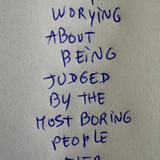 WORYING
ABOUT
BEING
JUDGED
BY THE
MOST BORING
PEOPLE